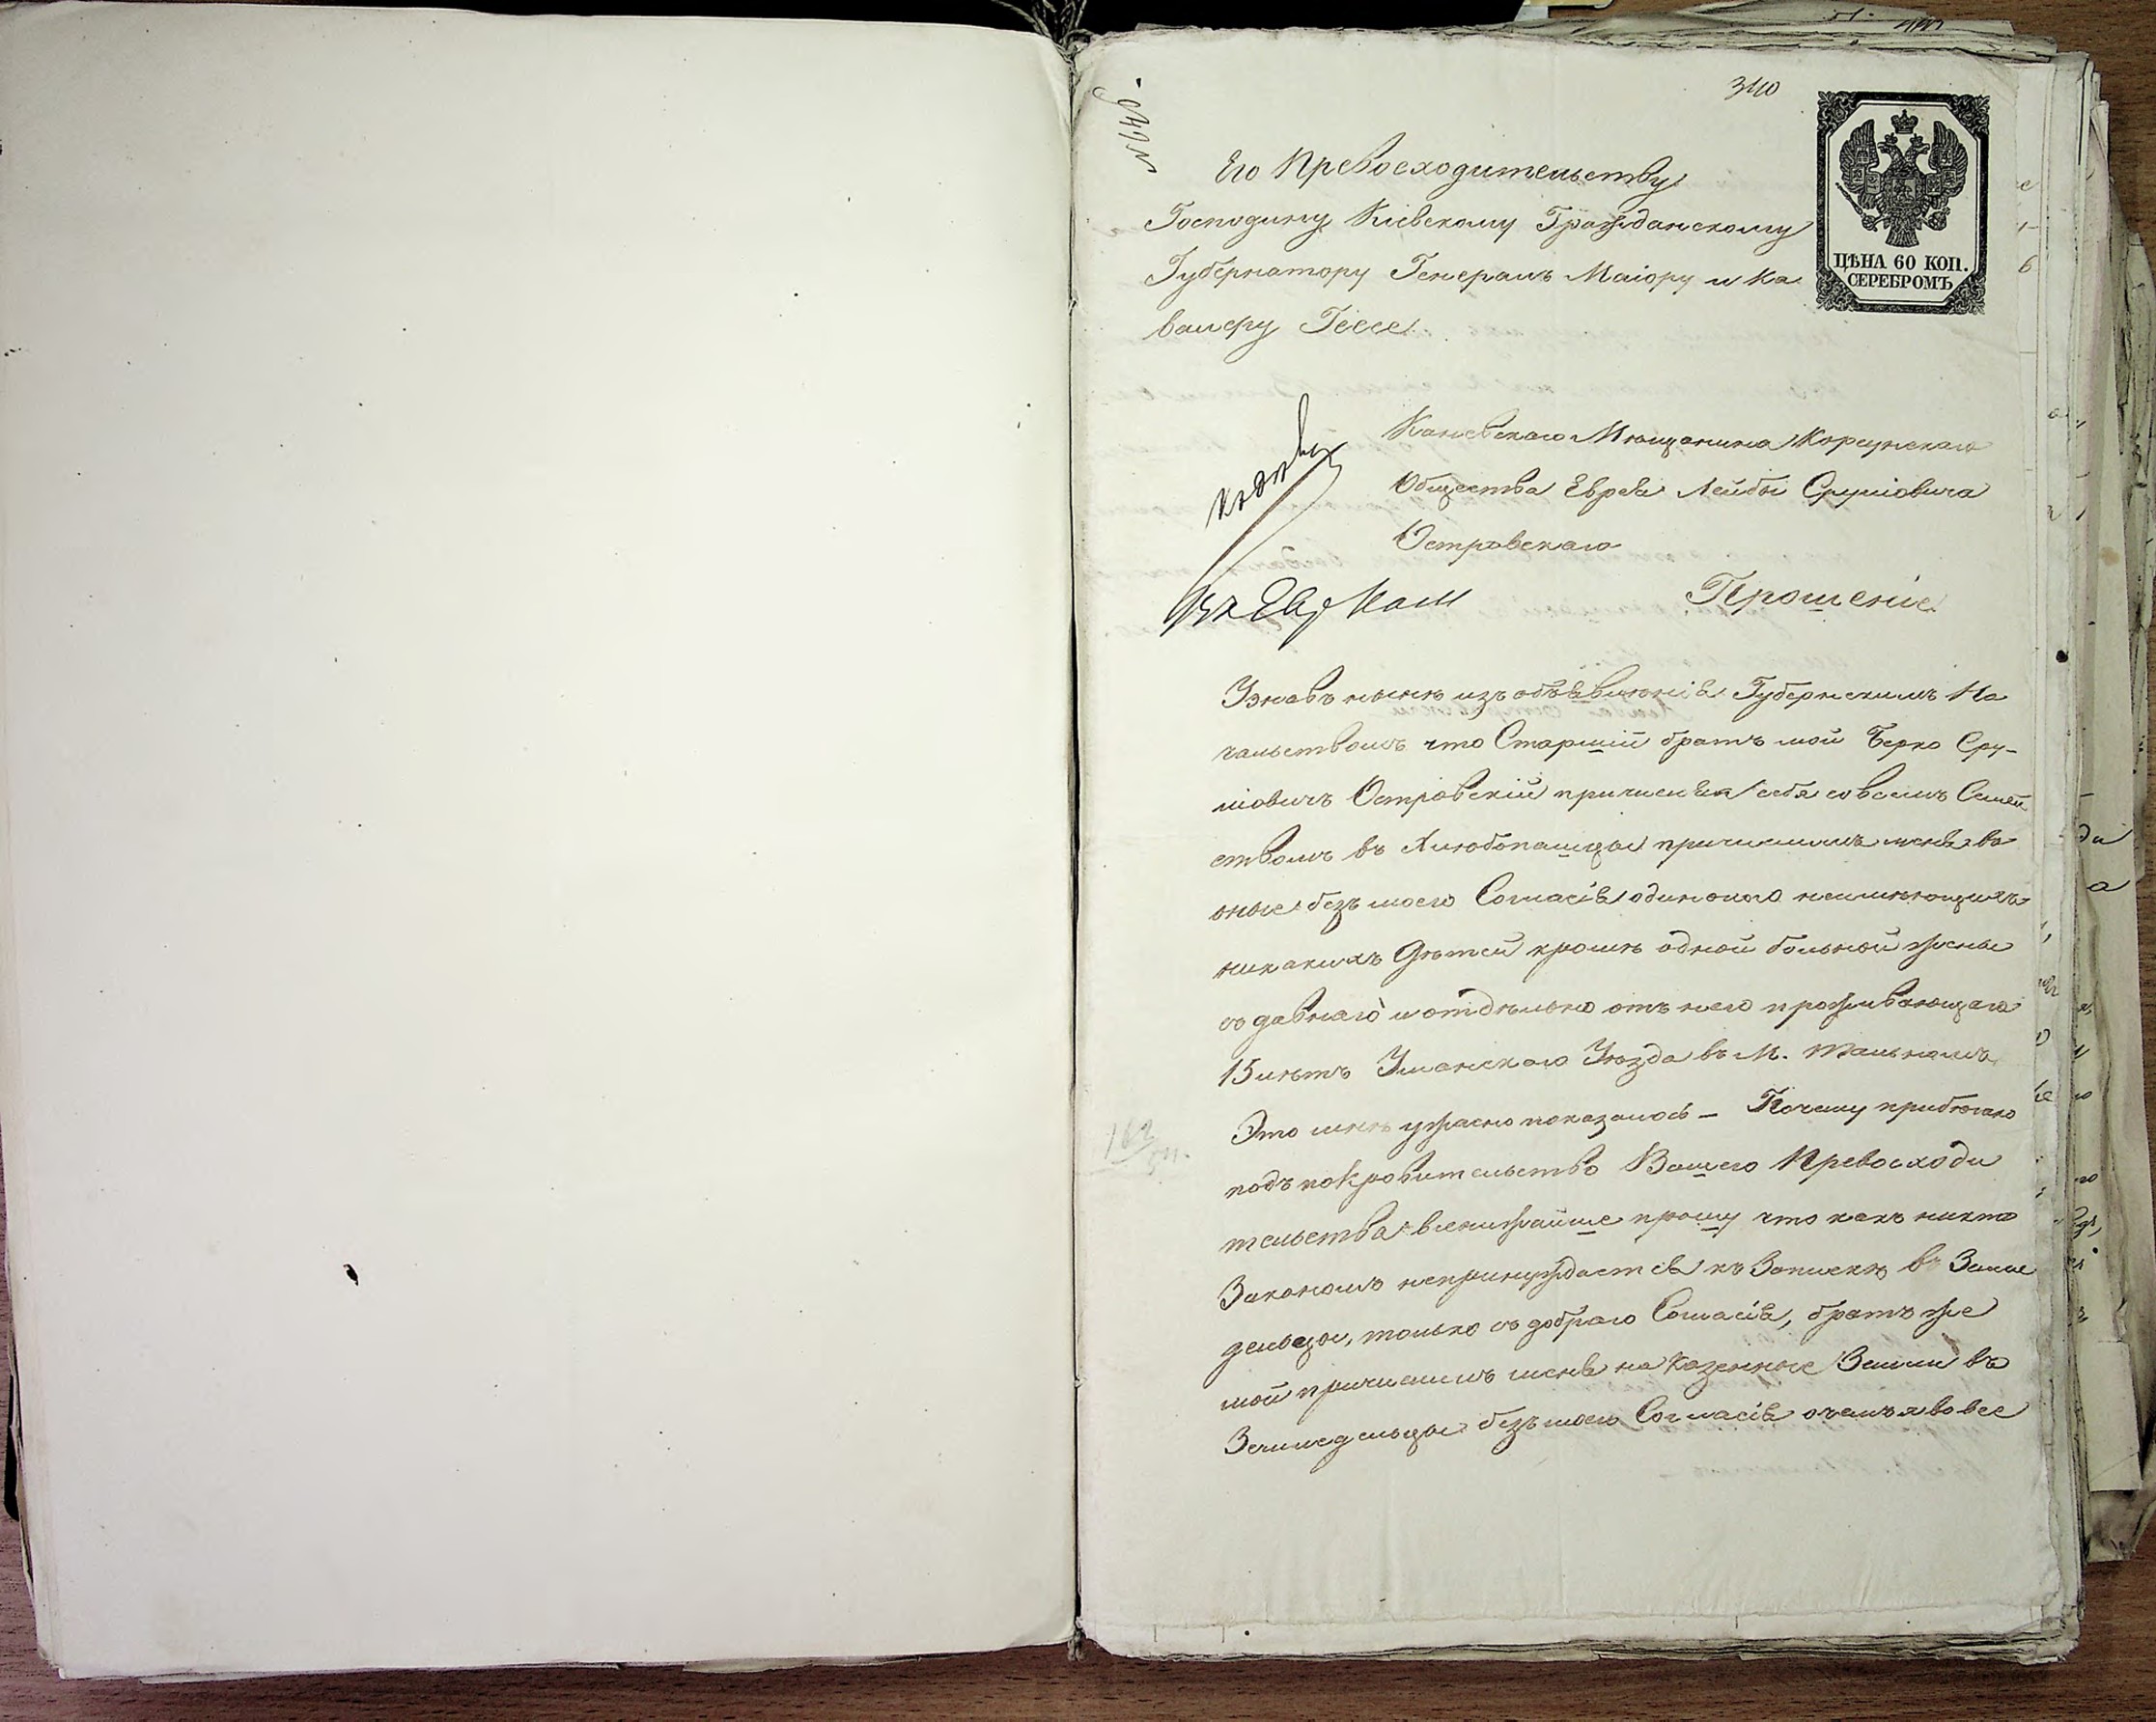 340
№ 449.
ЦѢНА 60 КОП.
СЕРЕБРОМЪ
Его Превосходительству
Господину Кіевскому Гражданскому
Губернатору Генералъ Маіору и Ка
валеру Гессе
Каневскаго Мѣщанина Корсунскаго
Общества Еврея Лейбы Сруліовича
Островскаго
Прошеніе
Узнавъ нынѣ изъ объявленія Губернскимъ На
чальствомъ что Старшій братъ мой Берко Сру-
ліовичъ Островскій причисляя себя совсемъ Семей
ствомъ въ Хлюбопашцы причислилъ меня во
оные безъ моего Согласія одинокого неимѣющихъ
никакихъ Дѣтей кромѣ одной больной жены
съ давнаго и отдѣльно отъ него проживающаго
15 лѣтъ Уманскаго Уѣзда въ М. Тальномъ
Это мнѣ ужасно показалось – Почему прибѣгаю
подъ покровительство Вашего Превосходи
тельства всенижайше прошу что какъ никто
Закономъ непринуждается къ Запискѣ въ Земле
дельцы, только съ добраго Согласія, братъ же
мой причислилъ меня на Казенные Земли въ
Земледельцы безъ моего Согласія очемъ я вовсе